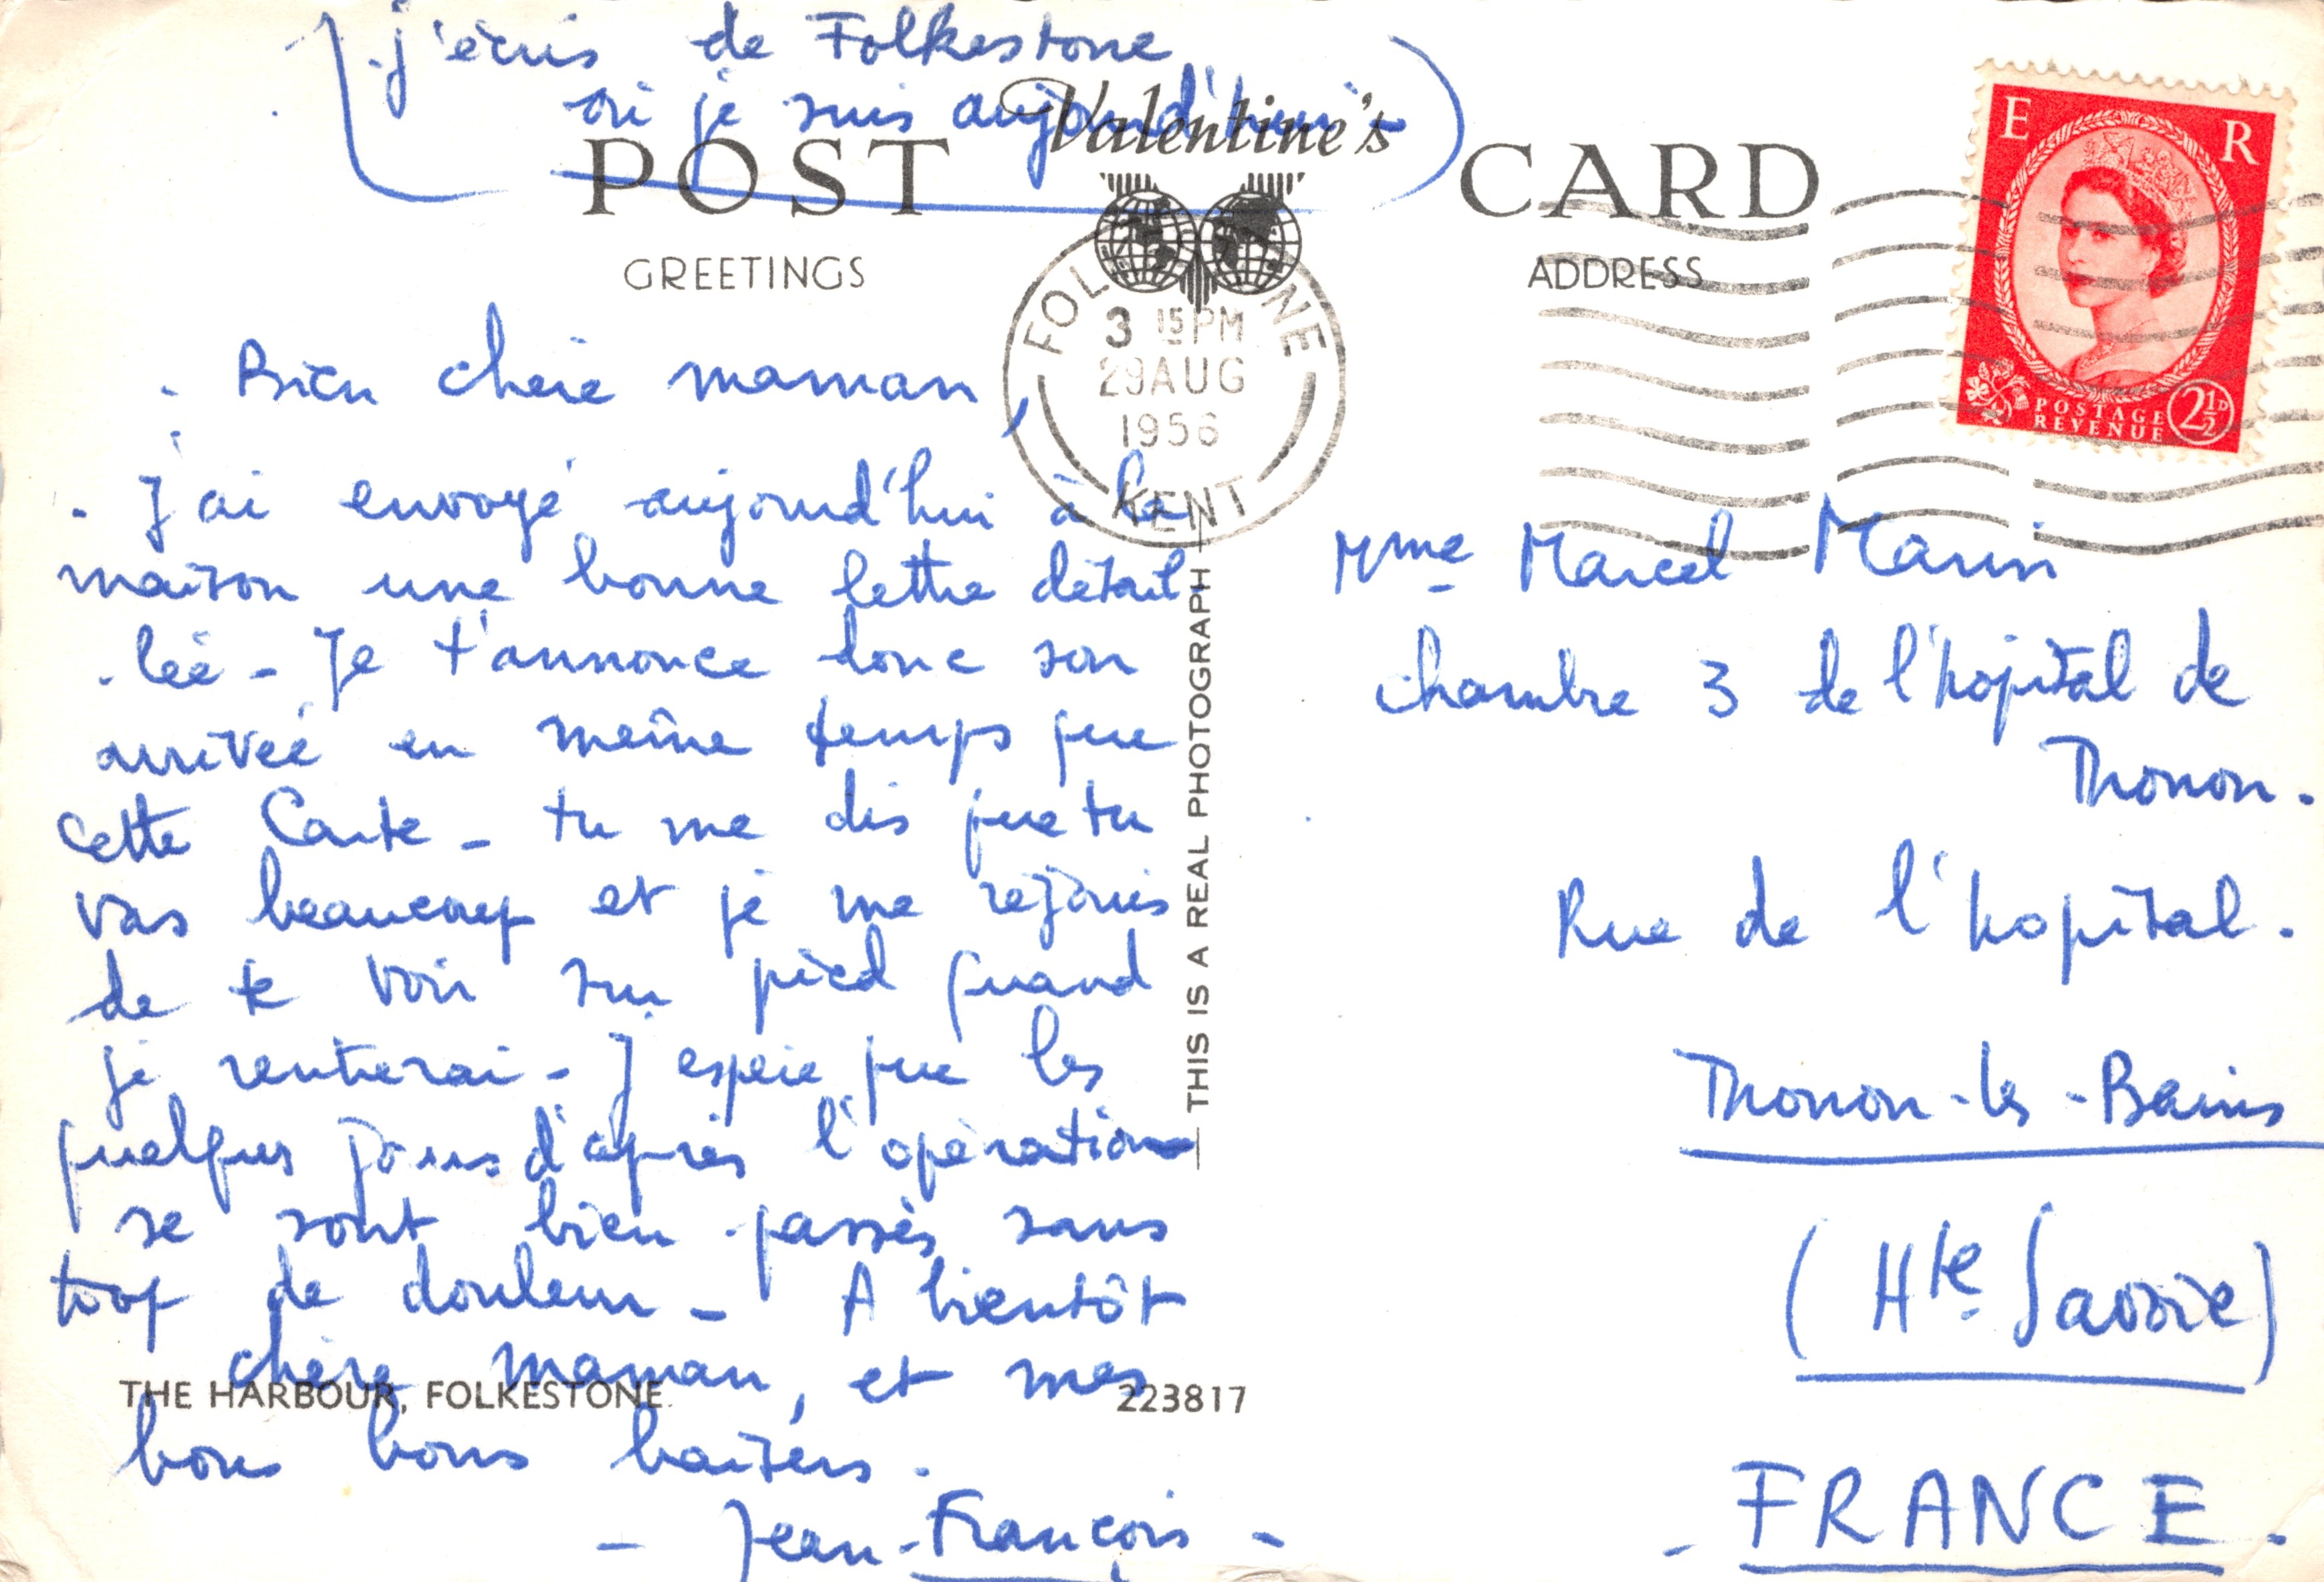 (j'écris de Folkestone
où je suis aujourd'hui)
Valentine's
POST CARD
GREETINGS
ADDRESS
FOLKESTONE
3 15 PM
29 AUG
1956
KENT
E R
POSTAGE
REVENUE
2½D
Bien chère maman,
J'ai envoyé aujourd'hui à la
maison une bonne lettre détail
lée - Je t'annonce donc son
arrivée en même temps que
cette Carte - tu me dis que tu
vas beaucoup et je me réjouis
de te voir sur pied quand
je rentrerai - J'espère que les
quelques jours d'après l'opération
se sont bien passés sans
trop de douleur - A bientôt
chère maman, et mes
bons bons baisers.
- Jean-François -
THIS IS A REAL PHOTOGRAPH
THE HARBOUR, FOLKESTONE.
223817
Mme Marcel
chambre 3 de l'hôpital de
Thonon.
Rue de l'hopital.
Thonon-les-Bains
(Hte Savoie)
- FRANCE.